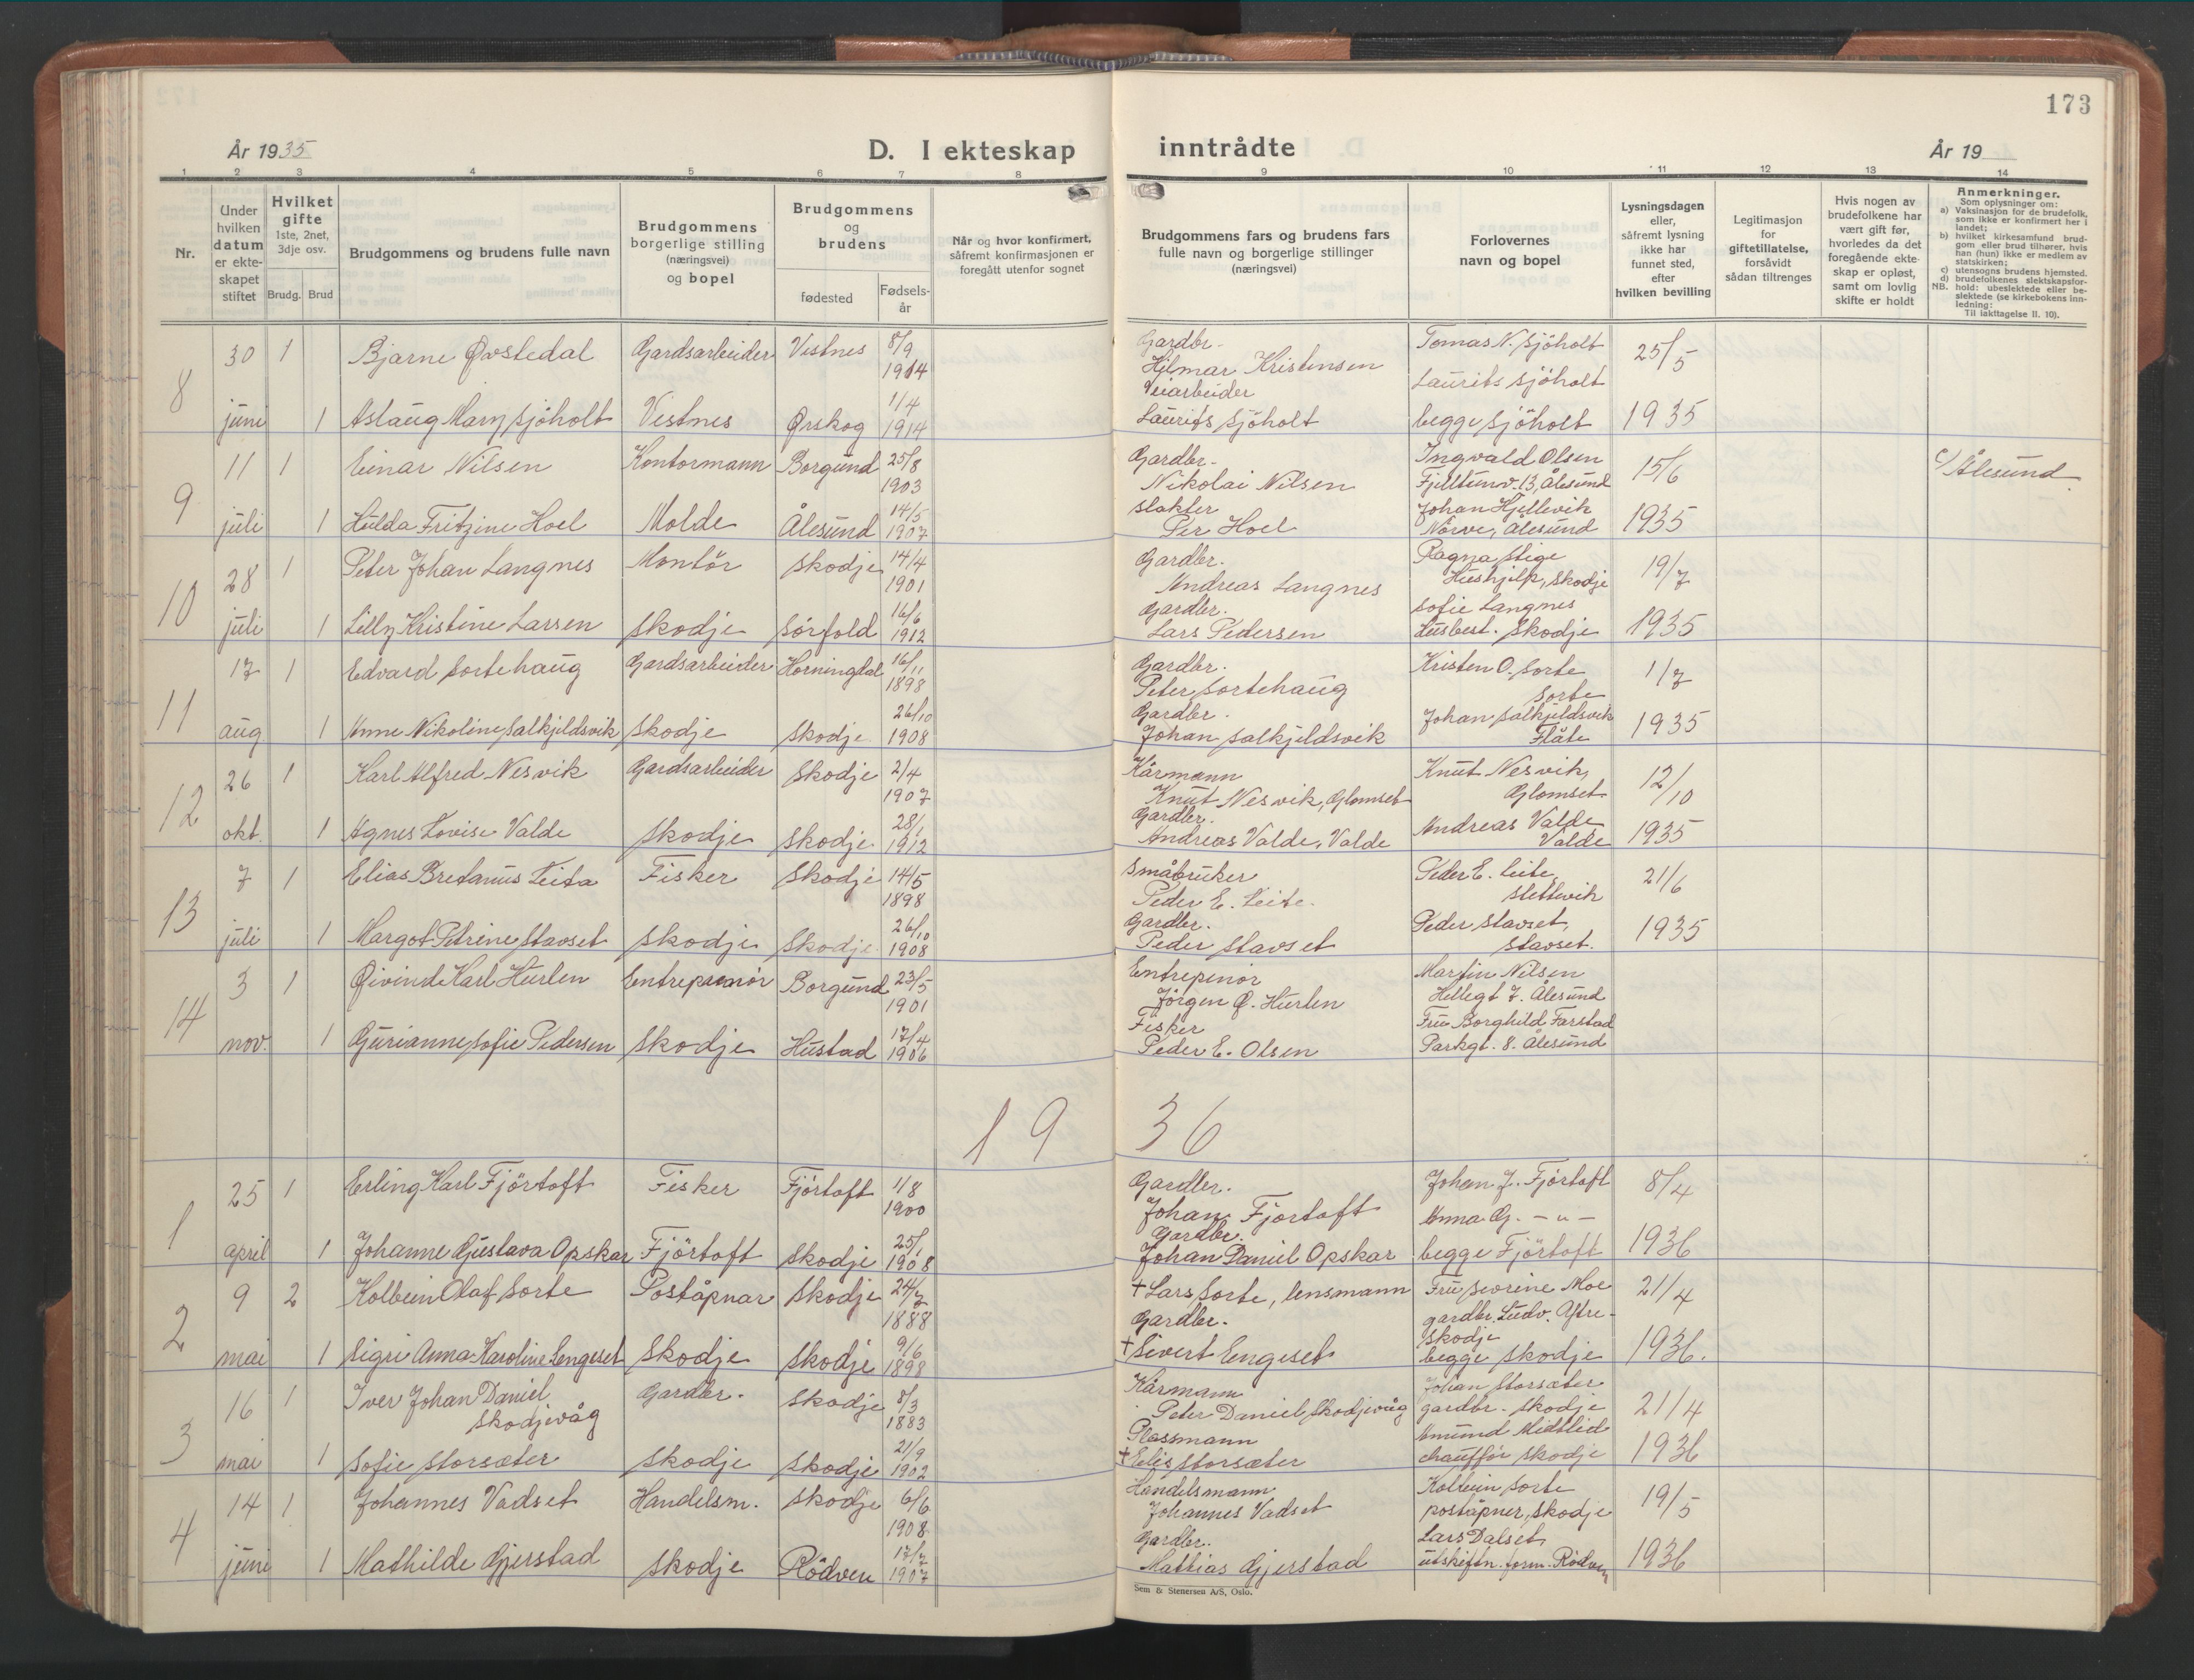 173
År 1935
D. I ekteskap inntrådte
År 19
1 2 3 4 5 6 7 8 9 10 11 12 13 14
Nr.
Under
hvilken
datum
er ekte-
skapet
stiftet
Hvilket
gifte
1ste, 2net,
3dje osv.
Brudg. Brud
Brudgommens og brudens fulle navn
Brudgommens
borgerlige stilling
(næringsvei)
og bopel
Brudgommens
og
brudens
fødested
Fødsels-
år
Når og hvor konfirmert,
såfremt konfirmasjonen er
foregått utenfor sognet
Brudgommens fars og brudens fars
fulle navn og borgerlige stillinger
(næringsvei)
Forlovernes
navn og bopel
Lysningsdagen
eller,
såfremt lysning
ikke har
funnet sted,
efter
hvilken bevilling
Legitimasjon
for
giftetillatelse,
forsåvidt
sådan tiltrenges
Hvis nogen av
brudefolkene har
vært gift før,
hvorledes da det
foregående ekte-
skap er opløst,
samt om lovlig
skifte er holdt
Anmerkninger.
Som oplysninger om:
a) Vaksinasjon for de brudefolk,
som ikke er konfirmert her i
landet;
b) hvilket kirkesamfund brud-
gom eller brud tilhører, hvis
han (hun) ikke er medlem av
statskirken;
c) utensogns brudens hjemsted.
d) brudefolkenes slektskapsfor-
hold: ubeslektede eller be-
slektede (se kirkebokens inn-
ledning:
NB.
Til iakttagelse II. 10).
8
30 1 Bjarne Øvstedal Gardsarbeider Vestnes 8/9 1914
juni 1 Aslaug Mary Sjöholt Vestnes Ørskog 1/4 1914
Gardbr.
Hjlmar Kristensen
Veiarbeider
Laurits Sjöholt
Tomas N. Sjöholt
Laurits Sjöholt
begge Sjöholt
25/5
1935
9
11 1 Einar Nilsen Kontormann Borgund 25/8 1903
juli 1 Hulda Fritzine Hoel Molde Ålesund 14/5 1907
Gardbr.
Nikolai Nilsen
Slakter
Per Hoel
Ingvald Olsen
Fjelltunv. 13, Ålesund
Johan Hjellevik
Nörve, Ålesund
15/6
1935
c/ Ålesund.
10
28 1 Peter Johan Langnes Montör Skodje 14/4 1901
juli 1 Lilly Kristine Larsen Skodje Sörfold 16/6 1912
Gardbr.
Andreas Langnes
Gardbr.
Lars Pedersen
Ragna Stige
Hushjelp, Skodje
Sofie Langnes
Husbest. Skodje
19/7
1935
11
17 1 Edvard Sortehaug Gardsarbeider Horningdal 16/11 1898
aug 1 Anne Nikoline Salkjeldsvik Skodje Skodje 26/10 1908
Gardbr.
Peter Sortehaug
Gardbr.
Johan Salkjeldsvik
Kristen O. Sorte
Sorte
Johan Salkjeldsvik
Flåte
1/7
1935
12
26 1 Karl Alfred Nesvik Gardsarbeider Skodje 2/4 1907
okt. 1 Agnes Lovise Valde Skodje Skodje 28/1 1912
Kårmann
Knut Nesvik, Glomset
Gardbr.
Andreas Valde, Valde
Knut Nesvik,
Glomset
Andreas Valde,
Valde
12/10
1935
13
7 1 Elias Bretanus Leita Fisker Skodje 14/5 1898
juli 1 Margot Petrine Stavset Skodje Skodje 26/10 1908
Småbruker
Peder E. Leite.
Gardbr.
Peder Stavset
Peder E. Leite,
Stettevik
Peder Stavset,
Stavset.
21/6
1935
14
3 1 Øivind Karl Hurlen Entreprenör Borgund 23/5 1901
nov. 1 Gurianne Sofie Pedersen Skodje Hustad 17/4 1906
Entrepenör
Jörgen Ø. Hurlen
Fisker
Peder E. Olsen
Martin Nilsen
Hellegt 7. Ålesund
Fru Borghild Farstad
Parkgt. 8. Ålesund
1936
1
25 1 Erling Karl Fjörtoft Fisker Fjörtoft 1/8 1900
april 1 Johanne Gustava Opskar Fjörtoft Skodje 25/1 1908
Gardbr.
Johan Fjortoft
Gardbr.
Johan Daniel Opskar
Johan J. Fjörtoft
Anna G. – " –
begge Fjörtoft
8/4
1936
2
9 2 Kolbein Olaf Sorte Poståpnar Skodje 24/7 1888
mai 1 Sigri Anna Karoline Engeset Skodje Skodje 9/6 1898
† Lars Sorte, lensmann
Gardbr.
† Sivert Engeset
Fru Severine Moe
gardbr. Ludv. Aftre-
Skodje
begge Skodje
21/4
1936.
3
16 1 Iver Johan Daniel
Skodjevåg Gardbr. Skodje 8/3 1883
mai 1 Sofie Storsæter Skodje Skodje 21/9 1902
Kårmann
Peter Daniel Skodjevåg
Plassmann
† Elis Storsæter
Johan Storsæter
gardbr. Skodje
Amund Midtlid
chaufför Skodje
21/4
1936
4
14 1 Johannes Vadset Handelsm. Skodje 6/6 1908
juni 1 Mathilde Gjerstad Skodje Rödven 17/7 1907
Handelsmann
Johannes Vadset
Gardbr.
Mattias Gjerstad
Kolbein Sorte
poståpner, Skodje
Lars Dalset,
utskiftn. form. Rödven
19/5
1936
Sem & Stenersen A/S, Oslo.